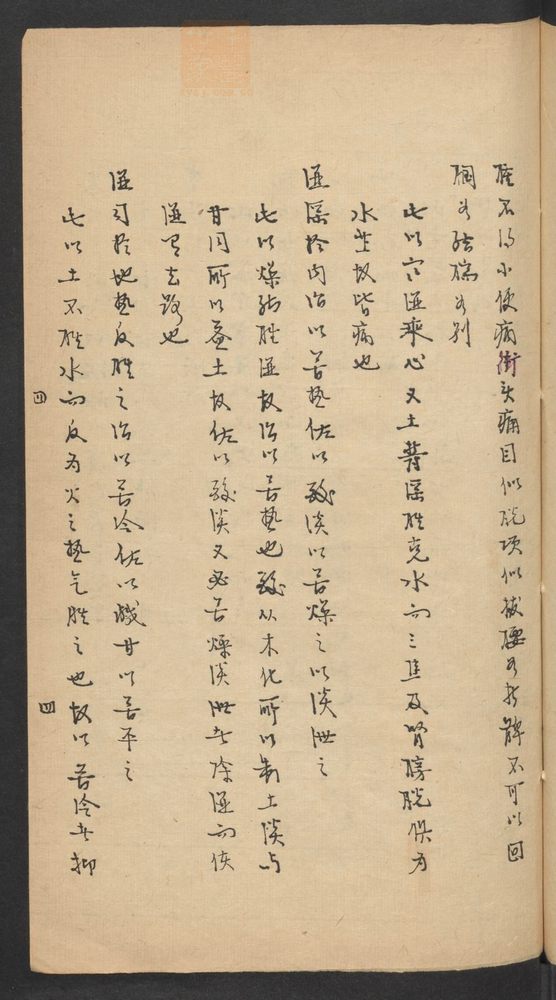 腫不得小便病衝頭痛目似脫項似拔腰如折髀不可以回
膕如結腨如別
此以宮湿乘心又土鬱湿勝克水而三焦及腎膀胱俱為
水藏故皆病也
湿淫於內治以苦熱佐以酸淡以苦燥之以淡泄之
此以燥能胜湿故治以苦熱也酸从木化所以制土淡与
甘同所以益土故佐以酸淡又必苦燥淡泄者除湿而使
湿有去路也
湿司於地熱反胜之治以苦冷佐以鹹甘以苦平之
此以土不胜水而反为火之熱气胜之也故以苦冷者抑
四
四